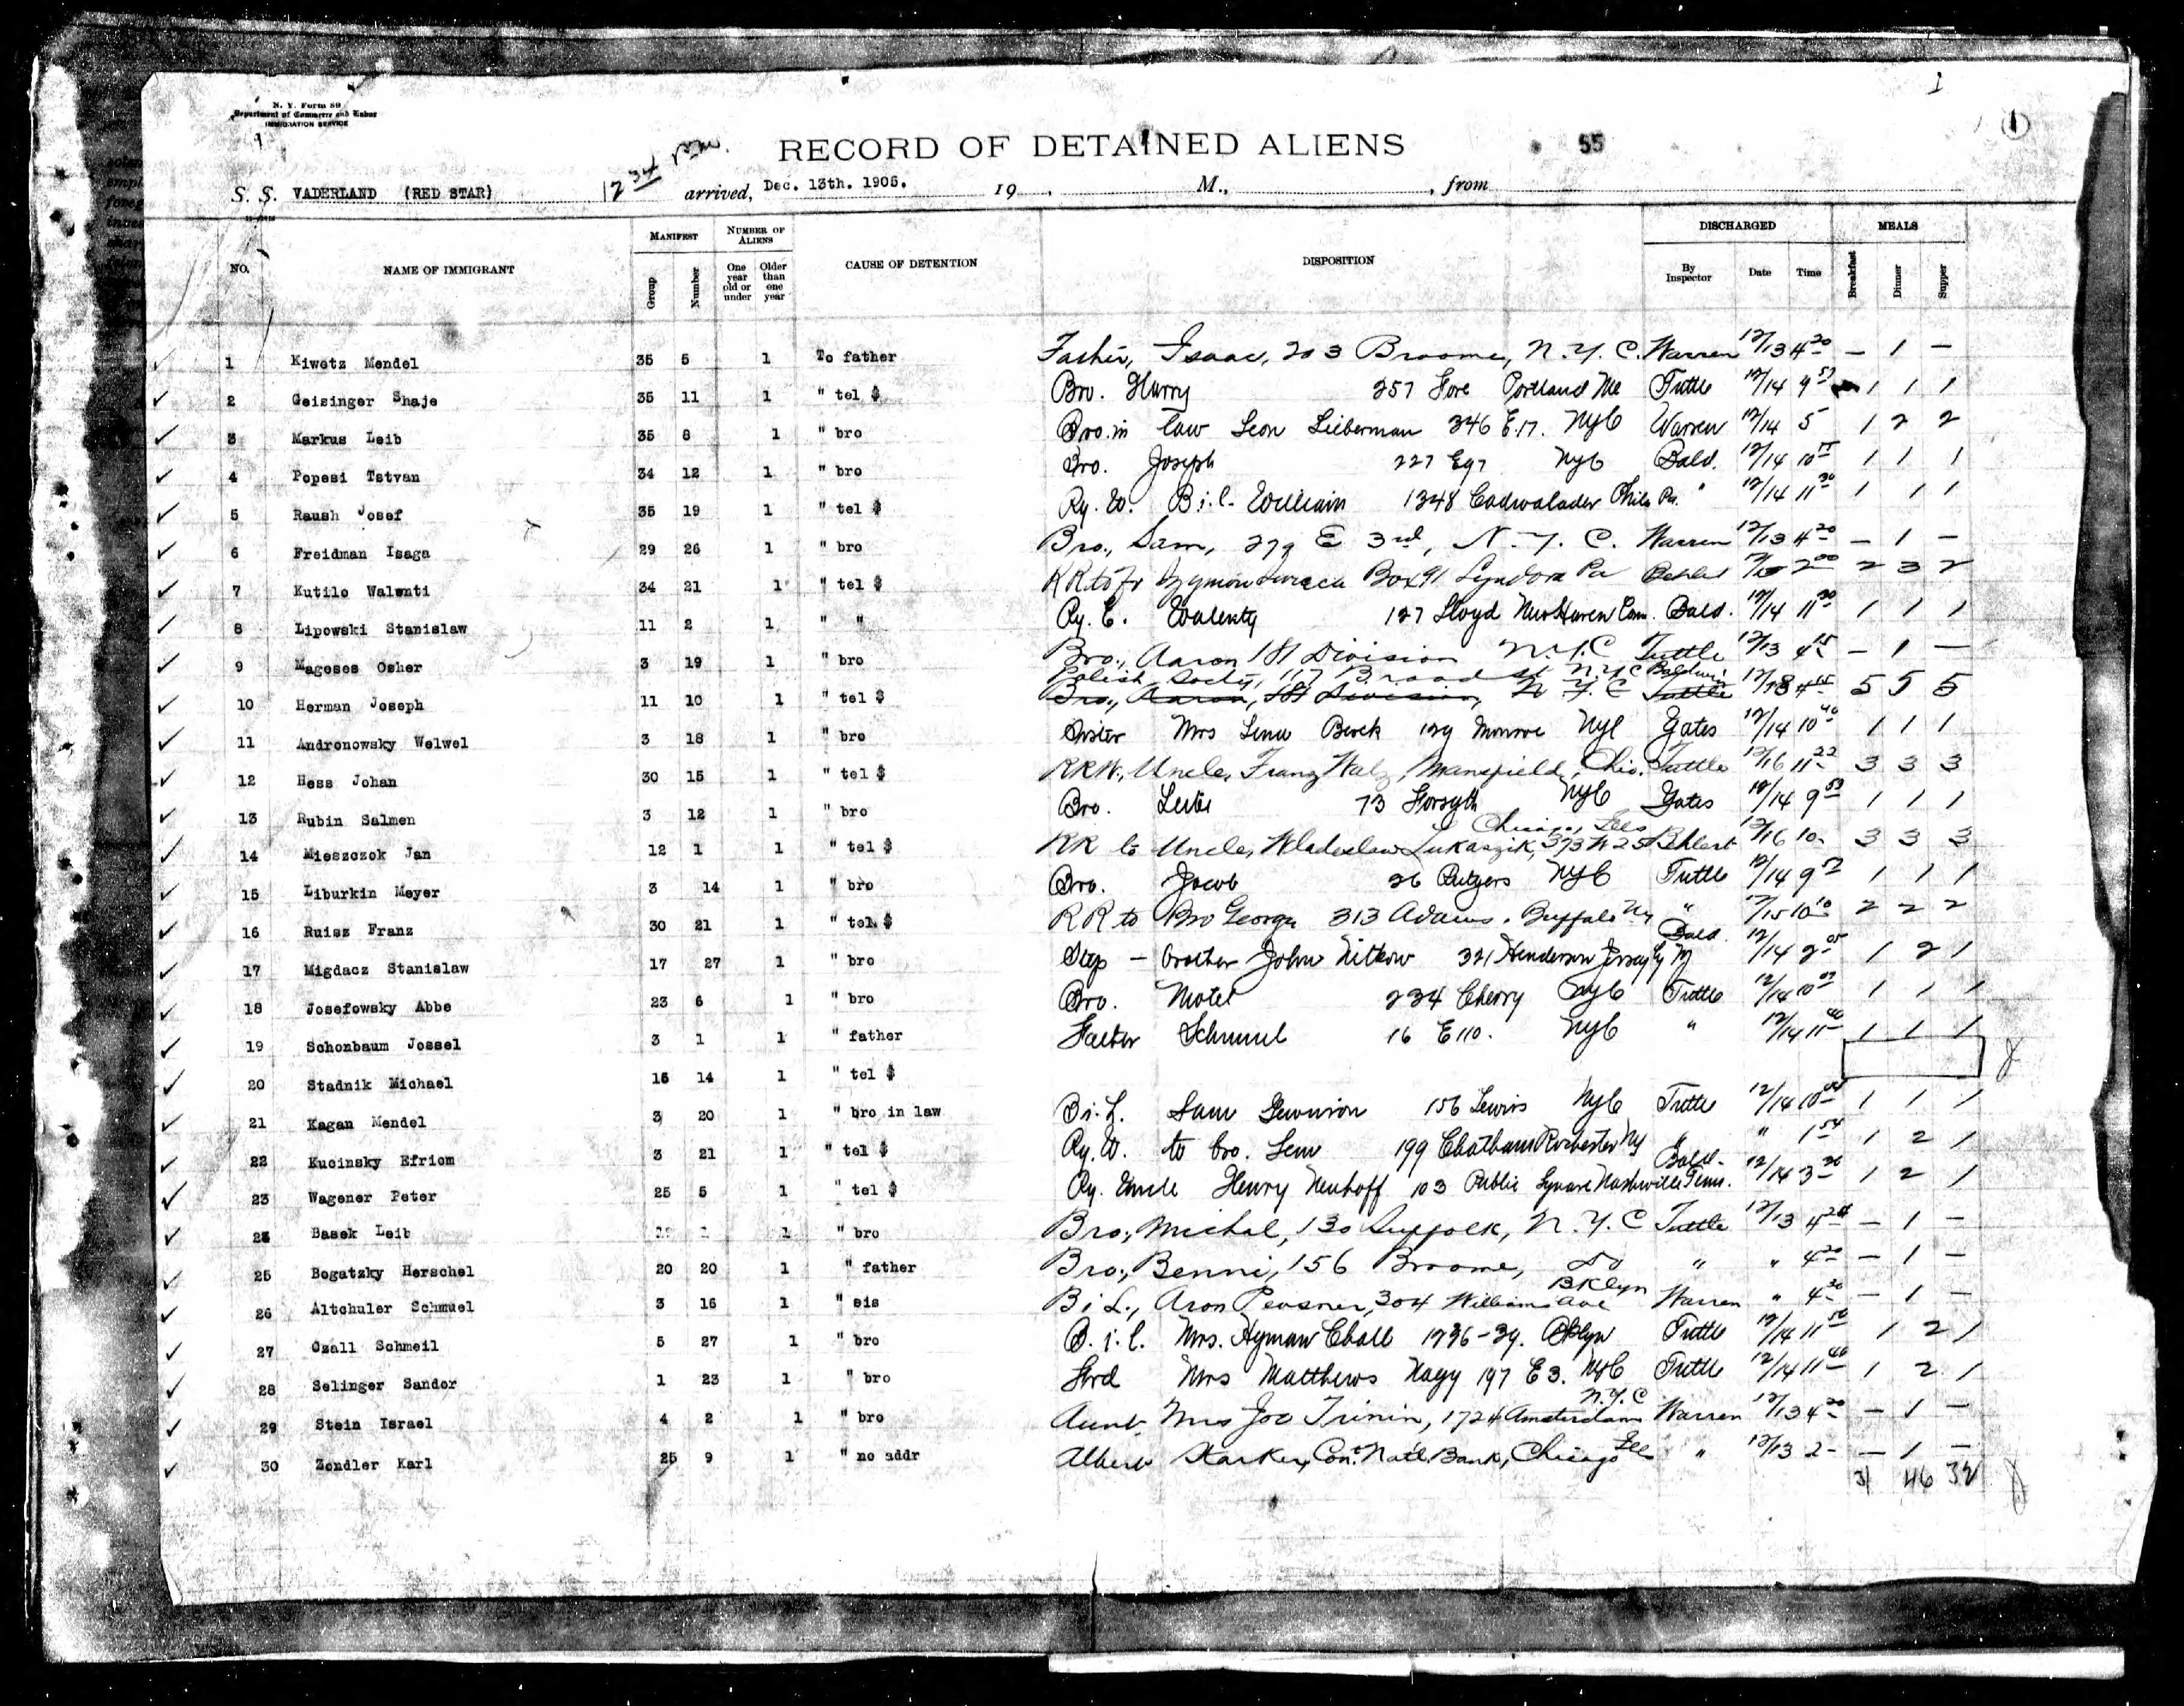 N. Y. Form 89
Department of Commerce and Labor
IMMIGRATION SERVICE
1
RECORD OF DETAINED ALIENS 55
S. S. VADERLAND (RED STAR) arrived, Dec. 13th. 1905. 19 , M., , from
NO. NAME OF IMMIGRANT MANIFEST Group Number NUMBER OF ALIENS One year old or under Older than one year CAUSE OF DETENTION DISPOSITION DISCHARGED By Inspector Date Time MEALS Breakfast Dinner Supper
1 Kiwetz Mendel 35 5 1 To father Father, Isaac, 203 Broome, N.Y.C. Warren 12/13 4 20 – 1 –
2 Geisinger Shaje 35 11 1 " tel $ Bro. Harry 257 Fore Portland Me Tuttle 12/14 9 57 1 1 1
3 Markus Leib 35 8 1 " bro Bro. in law Leon Lieberman 346 E.17. NYC Warren 12/14 5 1 2 2
4 Popesi Tstvan 34 12 1 " bro Bro. Joseph 227 E97 NYC Bald. 12/14 10 1 1 1
5 Raush Josef 35 19 1 " tel $ Ry. W. B.i.l. William 1348 Cadwalader Phila Pa. " 12/14 11 30 1 1 1
6 Freidman Isaga 29 26 1 " bro Bro., Sam, 279 E 3rd, N.Y.C. Warren 12/13 4 20 – 1 –
7 Kutilo Walenti 34 21 1 " tel $ RR to Fr Box 91 Lyndora Pa 2 00 2 3 2
8 Lipowski Stanislaw 11 2 1 " " Ry. E. Walenty 127 Lloyd New Haven Conn. Bald. 12/14 11 30 1 1 1
9 Mageses Osher 3 19 1 " bro Bro., Aaron 181 Division N.Y.C Tuttle 12/13 4 15 – 1 –
Polish Socty, 117 Broad St N.Y.C Baldwin
10 Herman Joseph 11 10 1 " tel $ Bro., Aaron, 181 Division, N.Y.C Tuttle 12/18 4 15 5 5 5
11 Andronowsky Welwel 3 18 1 " bro Sister Mrs Lena Berek 129 Monroe NYC Gates 12/14 10 40 1 1 1
12 Hess Johan 30 15 1 " tel $ RRW., Uncle, Franz Walz, Mansfield, Ohio. Tuttle 12/16 11 22 3 3 3
13 Rubin Salmen 3 12 1 " bro Bro. Leibe 73 Forsyth NYC Gates 12/14 9 53 1 1 1
Chicago, Ills
14 Mieszczok Jan 12 1 1 " tel $ RR to Uncle, Wladeslaw Lukaszik, 373 W 25 Behlert 12/16 10 3 3 3
15 Liburkin Meyer 3 14 1 " bro Bro. Jacob 26 Rutgers NYC Tuttle 12/14 9 52 1 1 1
16 Ruisz Franz 30 21 1 " tel. $ RR to Bro George 313 Adams. Buffalo NY " 12/15 10 10 2 2 2
17 Migdacz Stanislaw 17 27 1 " bro Step – brother John Nitkow 321 Henderson Jersey Cy NJ Bald. 12/14 2 05 1 2 1
18 Josefowsky Abbe 23 6 1 " bro Bro. Motel 234 Cherry NYC Tuttle 12/14 10 03 1 1 1
19 Schonbaum Jossel 3 1 1 " father Father Schmul 16 E 110. NYC " 12/14 11 40 1 1 1
20 Stadnik Michael 15 14 1 " tel $
21 Kagan Mendel 3 20 1 " bro in law B.i.L. Sam 156 Lewis NYC Tuttle 12/14 10 1 1 1
22 Kucinsky Efriom 3 21 1 " tel $ Ry. W. to bro. 199 Chatham Rochester NY " " 1 54 1 2 1
23 Wagener Peter 25 5 1 " tel $ Ry. Uncle Henry Neuhoff 103 Public Square Nashville Tenn. Bald. 12/14 3 20 1 2 1
Basek Leib 1 " bro Bro., Michal, 130 Suffolk, N.Y.C Tuttle 12/13 4 20 – 1 –
25 Bogatzky Herschel 20 20 1 " father Bro., Benni, 156 Broome, Do " " 4 20 – 1 –
Bklyn
26 Altchuler Schmuel 3 16 1 " sis B i L., Aron Pevsner, 304 Williams Ave Warren " 4 30 – 1 –
27 Czall Schmeil 5 27 1 " bro B. i. l. Mrs. Hyman Chall 1736–39. Bklyn Tuttle 12/14 11 50 1 2 1
28 Selinger Sandor 1 23 1 " bro Frd Mrs Matthews Nagy 197 E 3. NYC Tuttle 12/14 11 40 1 2 1
N.Y.C
29 Stein Israel 4 2 1 " bro Aunt, Mrs Joe Trinin, 1724 Amsterdam Warren 12/13 4 20 – 1 –
30 Zendler Karl 25 9 1 " no addr Albert Starker, Con. Natl. Bank, Chicago Ill " 12/13 2 – – 1 –
31 46 32